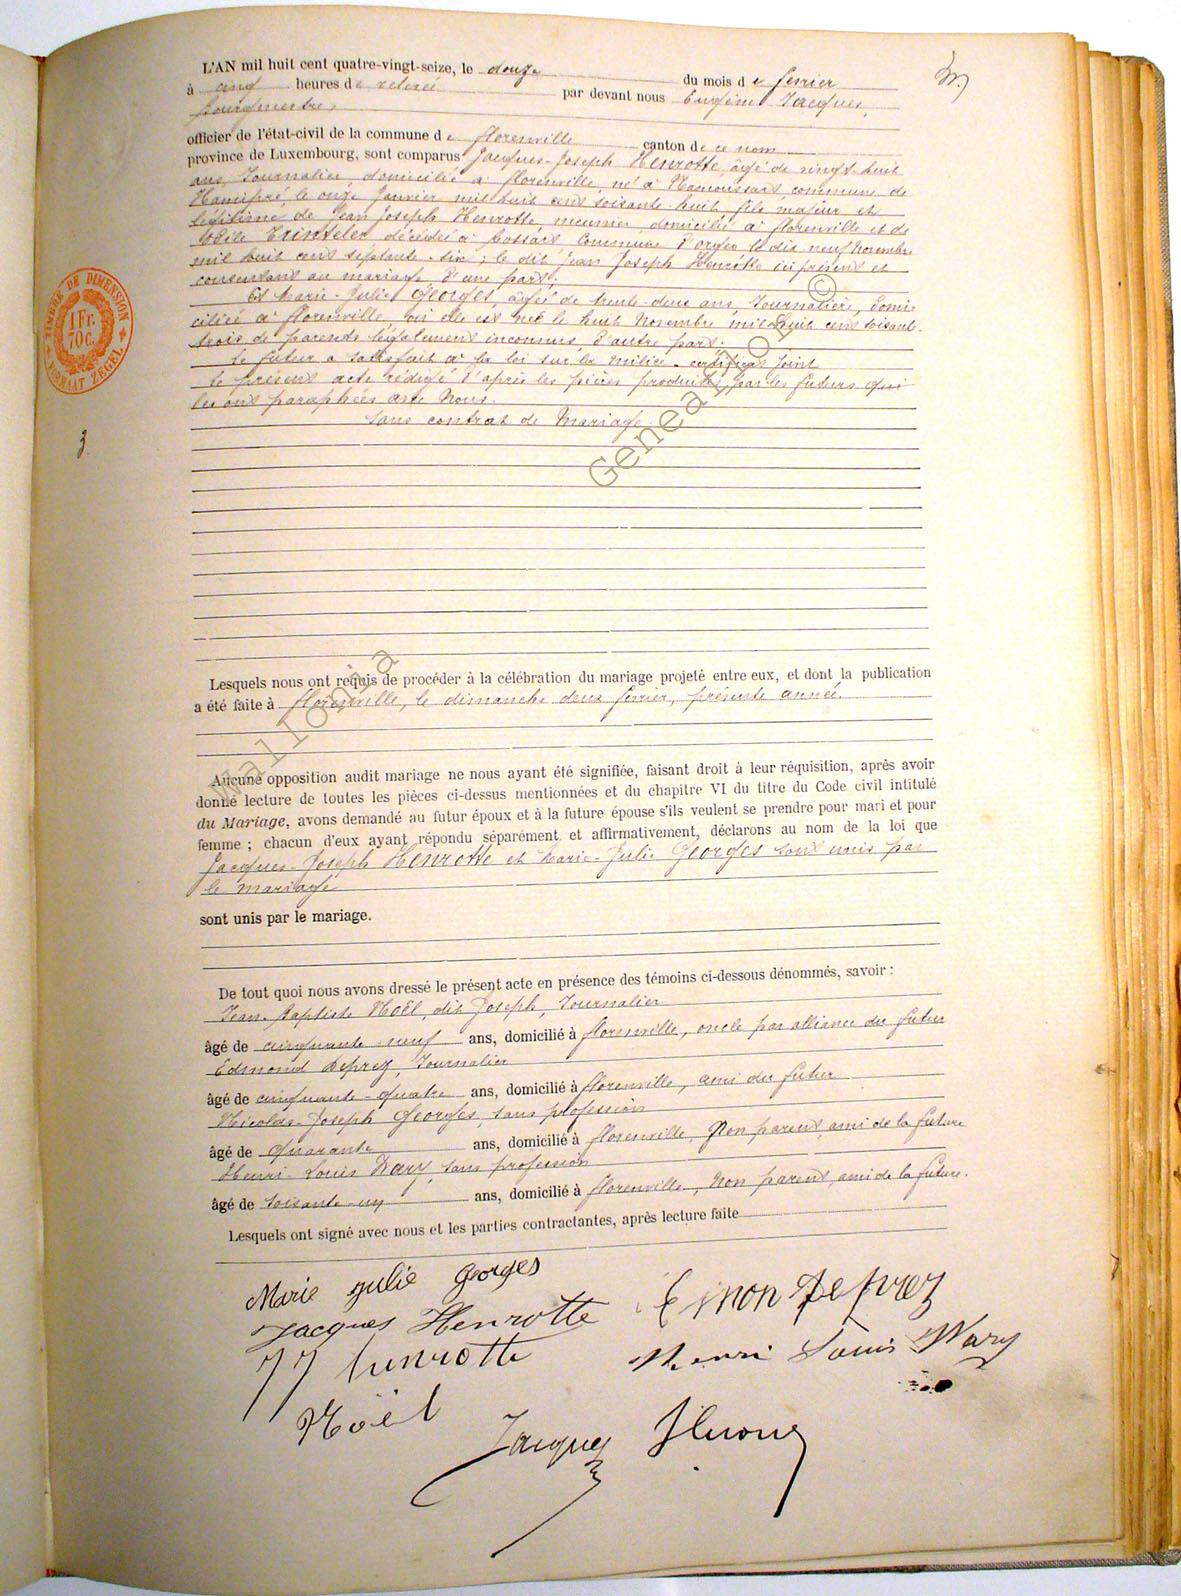 L'AN mil huit cent quatre-vingt-seize, le douze du mois de février
à cinq heures de relevée par devant nous Eugène Jacques,
bourgmestre,
officier de l'état-civil de la commune de Florenville canton de ce nom
province de Luxembourg, sont comparus Jacques-Joseph Henrotte, âgé de vingt-huit
ans, Journalier, domicilié à Florenville, né à Namoussart, commune de
Hamipré, le onze Janvier mil huit cent soixante-huit, fils majeur et
légitime de Jean Joseph Henrotte, meunier, domicilié à Florenville et de
Trinteler décédée à commune d'orgeo le dix-neuf Novembre
mil huit cent septante-six ; le dit Jean Joseph Henrotte ici présent et
consentant au mariage d'une part ;
Et Marie-Julie Georges, âgée de trente-deux ans, Journalière, domi-
ciliée à Florenville, où elle est née le huit Novembre mil huit cent soixante-
trois de parents légalement inconnus, d'autre part.
Le futur a satisfait à la loi sur la milice - certificat joint
le présent acte rédigé d'après les pièces produites par les futurs qui
les ont paraphées avec Nous.
Sans contrat de Mariage.
TIMBRE DE DIMENSION
1 Fr.
70c.
FORMAAT ZEGEL
3.
Genealo ©
Lesquels nous ont requis de procéder à la célébration du mariage projeté entre eux, et dont la publication
a été faite à Florenville, le dimanche deux février, présente année.
Wallonia
Aucune opposition audit mariage ne nous ayant été signifiée, faisant droit à leur réquisition, après avoir
donné lecture de toutes les pièces ci-dessus mentionnées et du chapitre VI du titre du Code civil intitulé
du Mariage, avons demandé au futur époux et à la future épouse s'ils veulent se prendre pour mari et pour
femme ; chacun d'eux ayant répondu séparément et affirmativement, déclarons au nom de la loi que
Jacques-Joseph Henrotte et Marie-Julie Georges sont unis par
le mariage
sont unis par le mariage.
De tout quoi nous avons dressé le présent acte en présence des témoins ci-dessous dénommés, savoir :
Jean-Baptiste Noël, dit Joseph, Journalier
âgé de cinquante-neuf ans, domicilié à Florenville, oncle par alliance du futur
Edmond Defrez, Journalier
âgé de cinquante-quatre ans, domicilié à Florenville, ami du futur
Nicolas-Joseph Georges, sans profession
âgé de quarante ans, domicilié à Florenville, Non parent, ami de la future
Henri-Louis Wary, sans profession
âgé de soixante-un ans, domicilié à Florenville, Non parent, ami de la future.
Lesquels ont signé avec nous et les parties contractantes, après lecture faite
Marie julie Georges
Jacques Henrotte Defrez
JJ henrotte Henri Louis Wary
Noël
Jacques